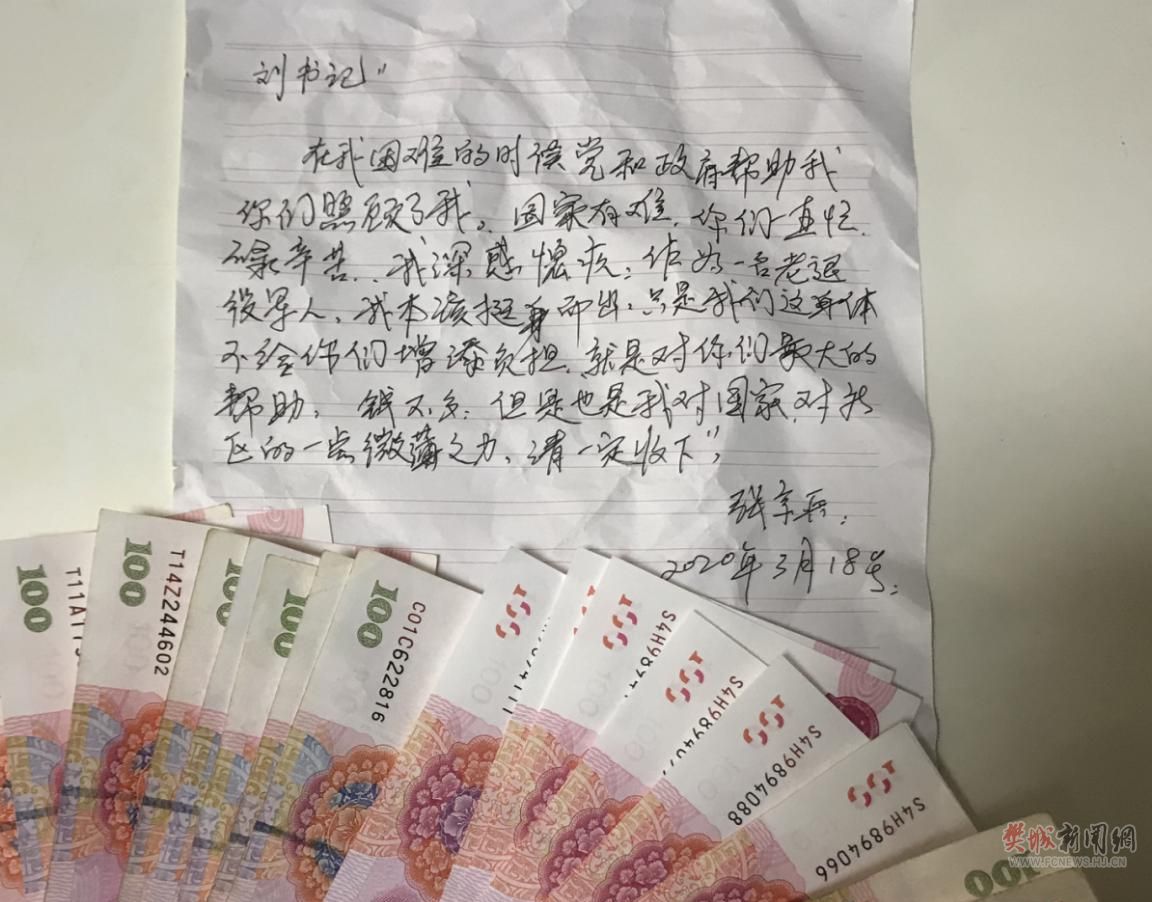 刘书记"
在我困难的时候党和政府帮助我
你们照顾了我。国家有难.你们一直忙.
碌辛苦..我深感愧疚;作为一名老退
役军人、我本该挺身而出,只是我们这身体
不给你们增添负担.就是对你们最大的
帮助, 钱不多;但是也是我对国家.对社
区的一点微薄之力、请一定收下",
张
2020年3月18号.
100
T11A1
100
T14Z244602
100
100
C01C622816
S4H987
S4H98940
S4H9894088
S4H9894066
100
樊城新闻網
WWW.FCNEWS.HJ.CN